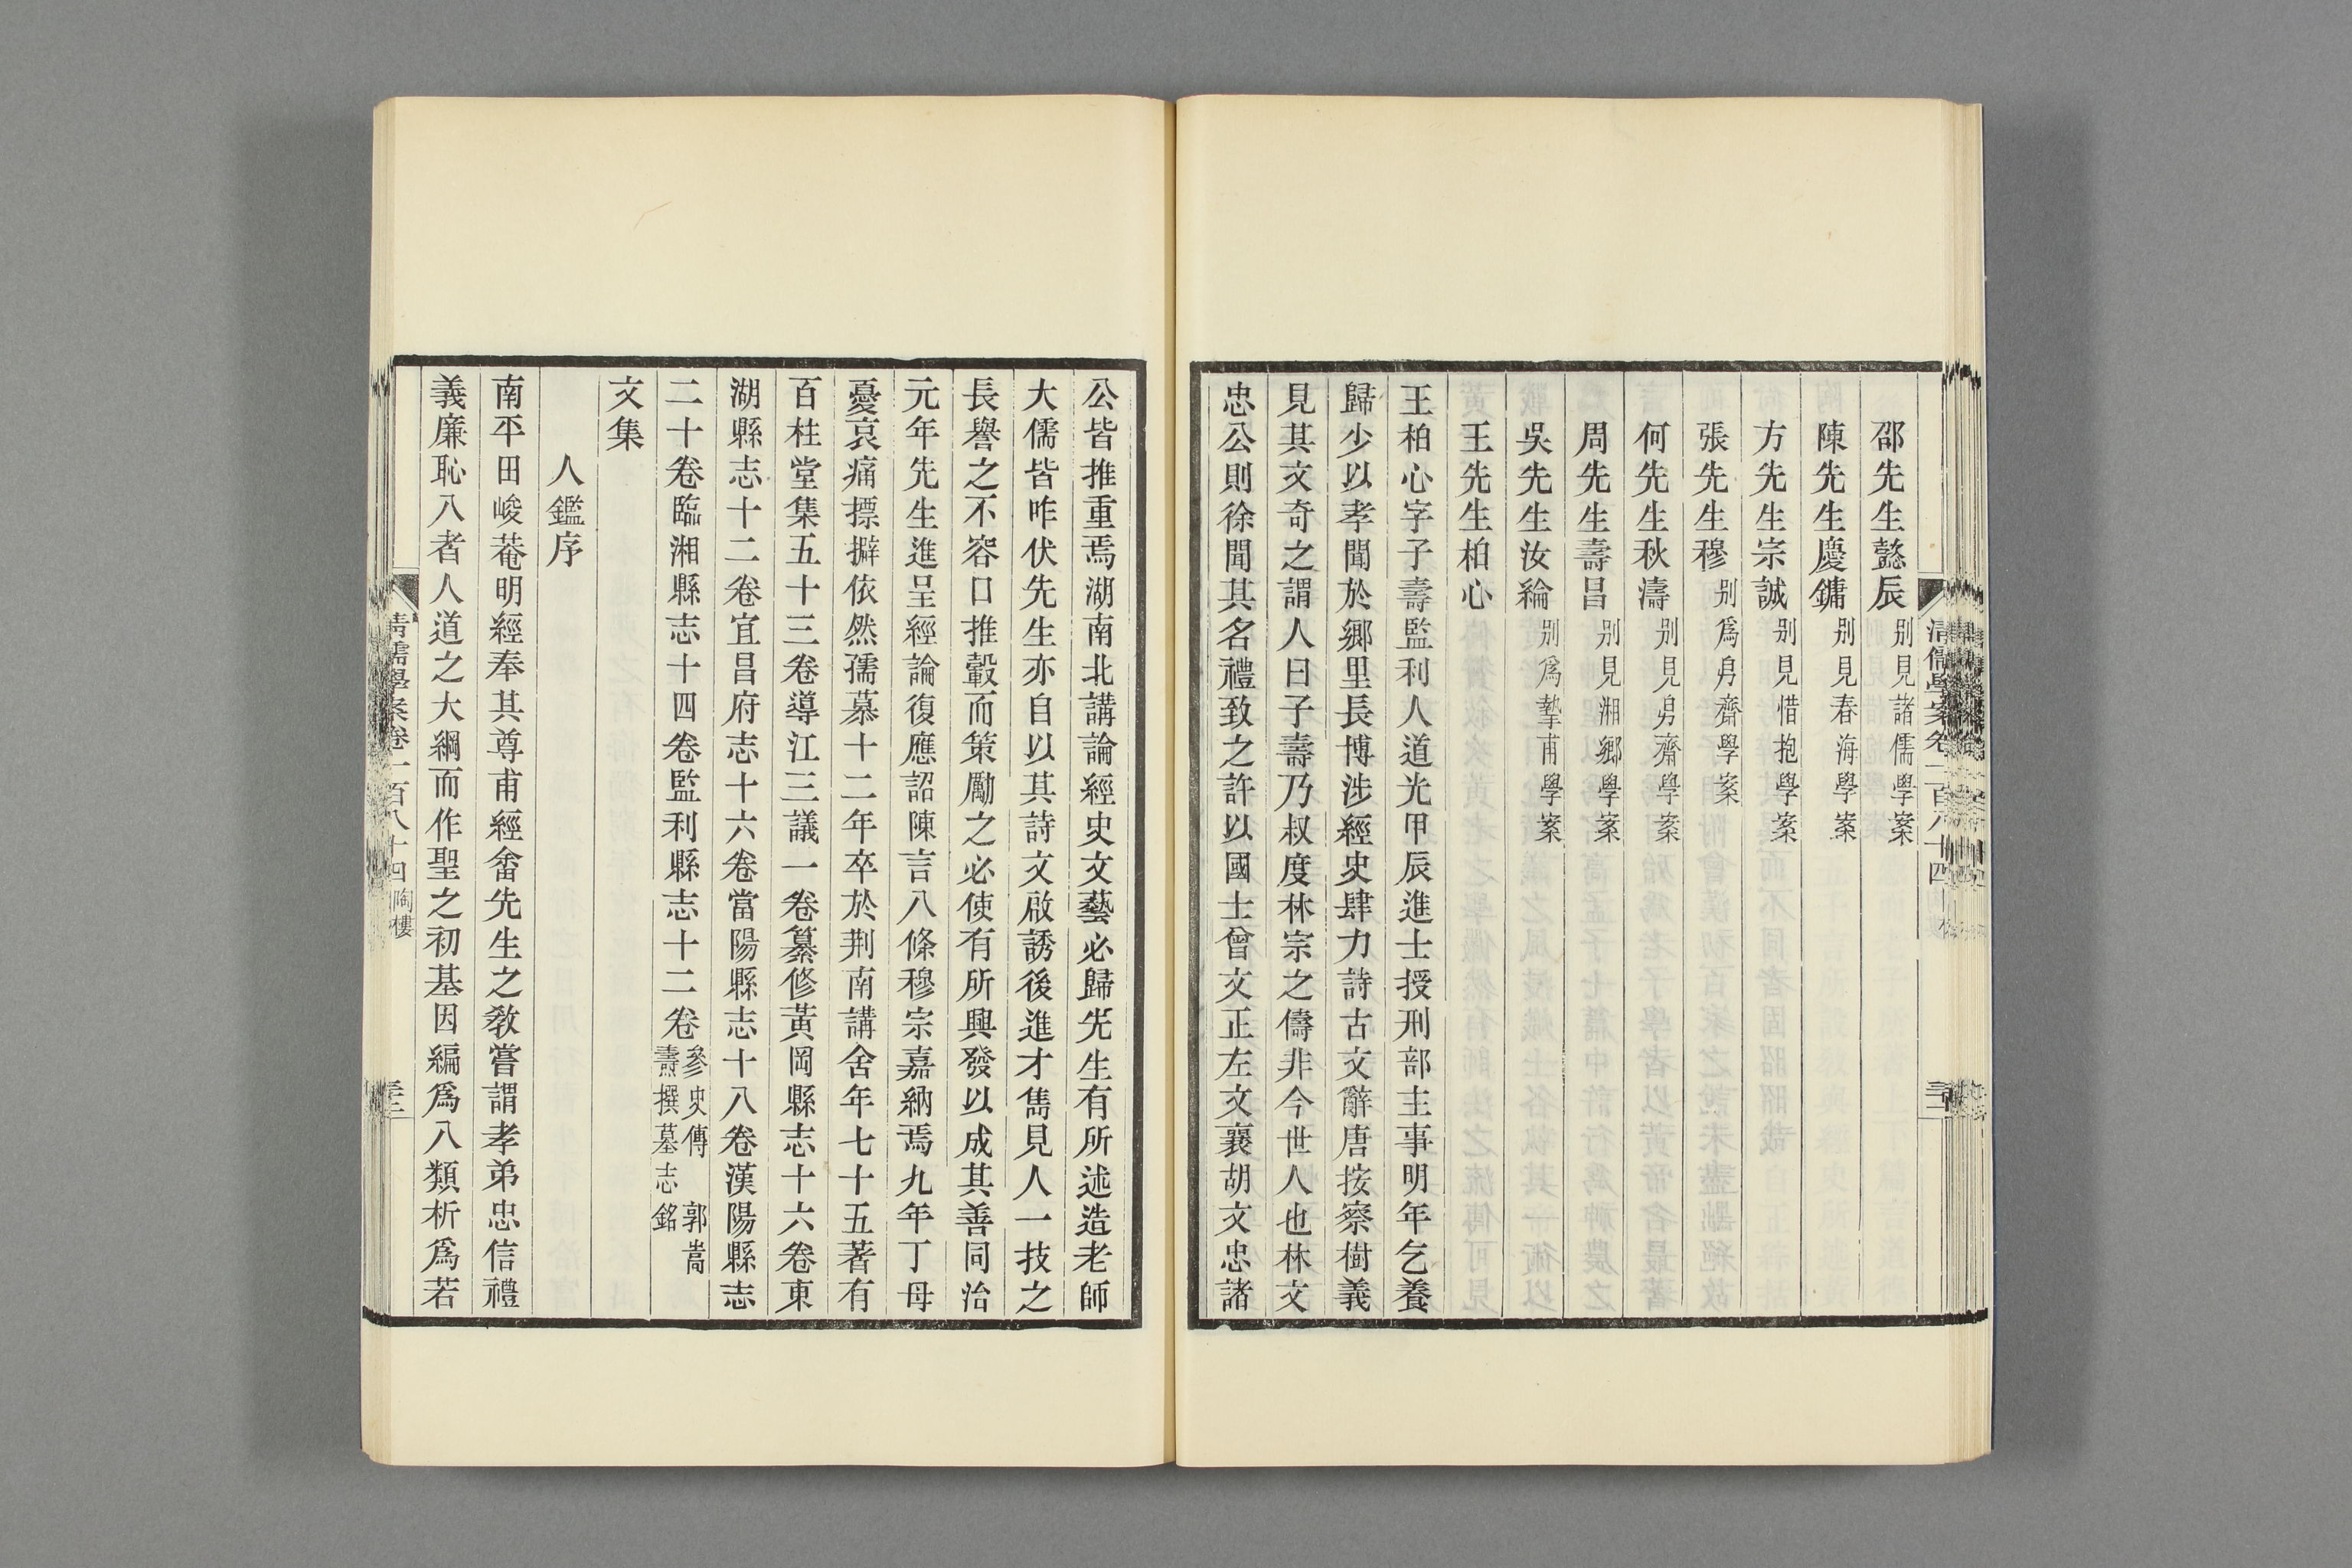 邵先生懿辰別見諸儒學案
陳先生慶鏞別見春海學案
方先生宗誠別見惜抱學案
張先生穆別爲㐆齋學案
何先生秋濤別見㐆齋學案
周先生壽昌別見湘鄉學案
吳先生汝綸別爲摯甫學案
王先生柏心
王柏心字子壽監利人道光甲辰進士授刑部主事明年乞養
歸少以孝聞於鄉里長博涉經史肆力詩古文辭唐按察樹義
見其文奇之謂人曰子壽乃叔度林宗之儔非今世人也林文
忠公則徐聞其名禮致之許以國士曾文正左文襄胡文忠諸
公皆推重焉湖南北講論經史文藝必歸先生有所述造老師
大儒皆咋伏先生亦自以其詩文啟誘後進才雋見人一技之
長譽之不容口推轂而策勵之必使有所興發以成其善同治
元年先生進呈經論復應詔陳言八條穆宗嘉納焉九年丁母
憂哀痛摽擗依然孺慕十二年卒於荆南講舍年七十五著有
百柱堂集五十三卷導江三議一卷纂修黃岡縣志十六卷東
湖縣志十二卷宜昌府志十六卷當陽縣志十八卷漢陽縣志
二十卷臨湘縣志十四卷監利縣志十二卷參史傳 郭嵩
壽撰墓志銘
文集
人鑑序
南平田峻菴明經奉其尊甫經畬先生之敎嘗謂孝弟忠信禮
義廉恥八者人道之大綱而作聖之初基因編爲八類析爲若
清儒學案卷一百八十四 陶樓